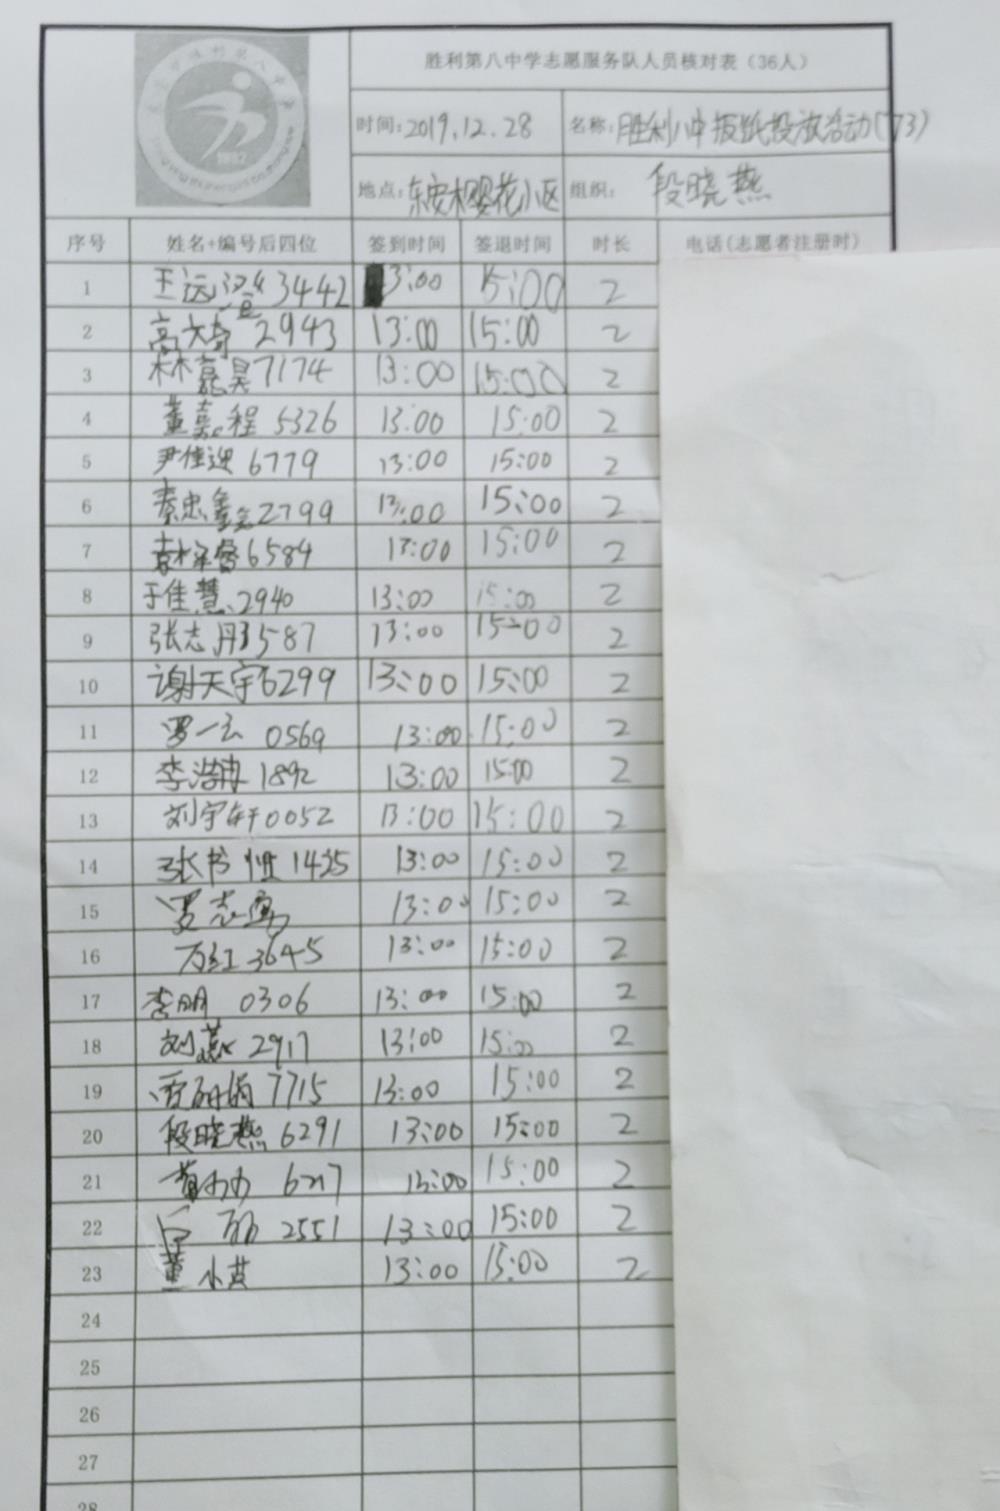 胜利第八中学志愿服务队人员核对表（36人）
时间：2019.12.28 名称：胜利八中报纸投放活动(73)
地点：东安樱花小区 组织：段晓燕
序号 姓名+编号后四位 签到时间 签退时间 时长 电话(志愿者注册时)
1 王远澄 3442 13:00 15:00 2
2 高大奇 2943 13:00 15:00 2
3 林嘉昊 7174 13:00 15:00 2
4 董嘉程 5326 13:00 15:00 2
5 尹佳迎 6779 13:00 15:00 2
6 秦忠鑫 2799 13:00 15:00 2
7 袁梓睿 6584 13:00 15:00 2
8 于佳慧 2940 13:00 15:00 2
9 张志 587 13:00 15:00 2
10 谢天宇 6299 13:00 15:00 2
11 罗一云 0569 13:00 15:00 2
12 李浩冉 1892 13:00 15:00 2
13 刘宇轩 0052 13:00 15:00 2
14 张书恒 1425 13:00 15:00 2
15 罗志勇 13:00 15:00 2
16 万红 3645 13:00 15:00 2
17 李明 0306 13:00 15:00 2
18 刘燕 2917 13:00 15:00 2
19 贾丽娟 7715 13:00 15:00 2
20 段晓燕 6291 13:00 15:00 2
21 6217 13:00 15:00 2
22 2551 13:00 15:00 2
23 董小燕 13:00 15:00 2
24
25
26
27
28